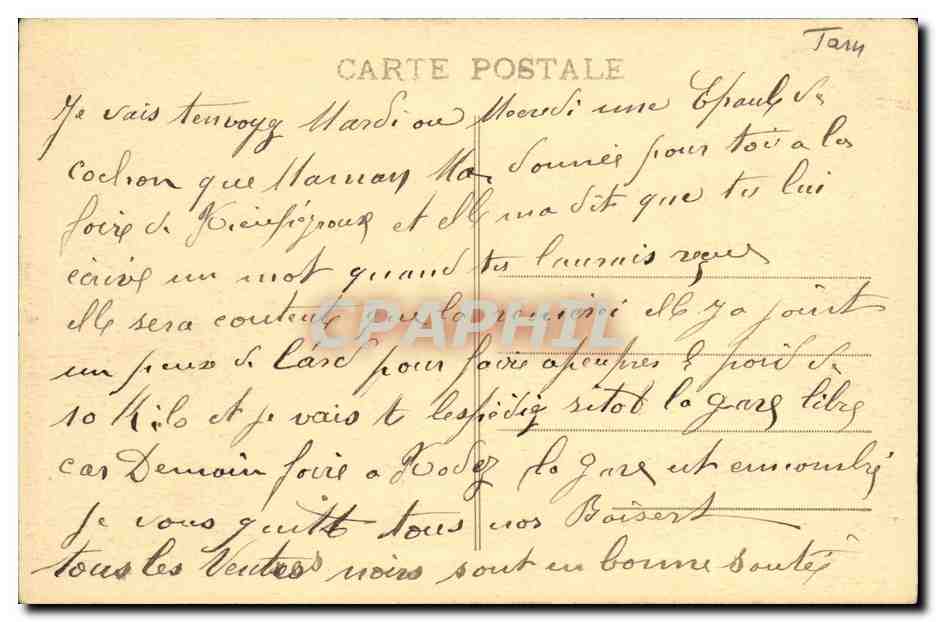 Tarn
CARTE POSTALE
Je vais tenvoyg Mardi ou Mecredi une Epaule de
cochon que Maman Ma donnée pour toi a la
foire de et elle ma dit que tu lui
écrive un mot quand tu lauras reçue
elle sera contente que la elle y a joint
un peux de Lard pour faire apeupres le poid de
10 Kilo et je vais te lespédig sitot la gare libre
car Demain foire a Rodez la gare ut encombré
je vous quitte tous nos Baisert
tous les Ventres noirs sont en bonne Santé
CPAPHIL